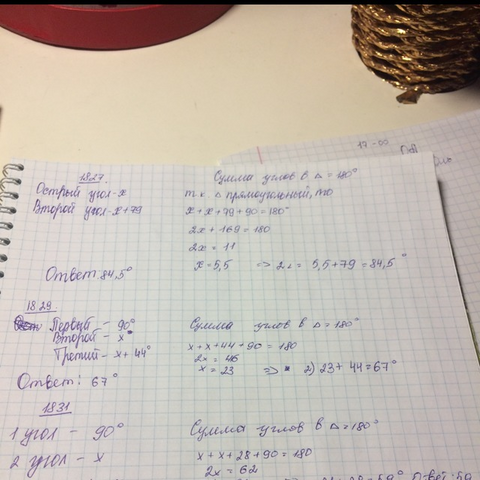 17-00
1827
Сумма углов в △ = 180°
Острый угол - x
т.к. △ прямоугольный, то
Второй угол - x+79
x + x + 79 + 90 = 180°
2x + 169 = 180
2x = 11
x = 5,5 => 2∠ = 5,5 + 79 = 84,5°
Ответ 84,5°
1829.
Первый - 90°
Сумма углов в △ = 180°
Второй - x°
x + x + 44 + 90 = 180
Третий - x + 44°
2x = 46
x = 23 => 2) 23 + 44 = 67°
Ответ: 67°
1831
1 угол - 90°
Сумма углов в △ = 180°
2 угол - x
x + x + 28 + 90 = 180
2x = 62
Ответ: 59